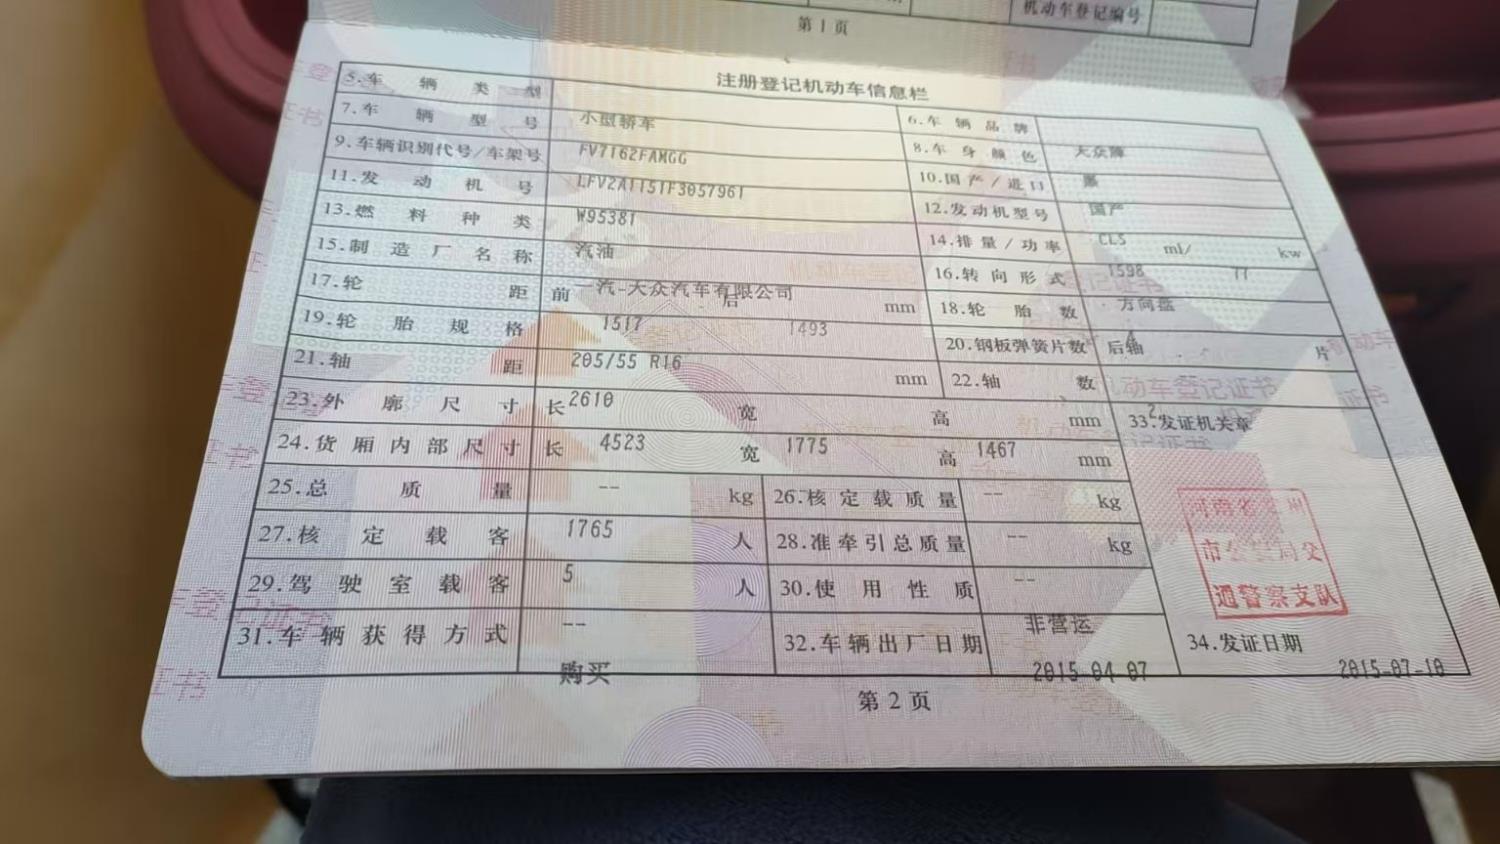 机动车登记编号
第1页
注册登记机动车信息栏
5.车辆类型 小型轿车 6.车辆品牌 大众牌
7.车辆型号 FV7162FAMGG 8.车身颜色
9.车辆识别代号/车架号 LFV2A1151F3057961 10.国产/进口 国产
11.发动机号 W95381 12.发动机型号 CLS
13.燃料种类 汽油 14.排量/功率 1598 ml/ 77 kw
15.制造厂名称 一汽-大众汽车有限公司 16.转向形式 方向盘
17.轮距 前 1517 后 1493 mm 18.轮胎数 4
19.轮胎规格 205/55 R16 20.钢板弹簧片数 后轴 片
21.轴距 2610 mm 22.轴数 2
23.外廓尺寸 长 4523 宽 1775 高 1467 mm 33.发证机关章
24.货厢内部尺寸 长 -- 宽 高 -- mm
25.总质量 1765 kg 26.核定载质量 -- kg
27.核定载客 5 人 28.准牵引总质量 -- kg
29.驾驶室载客 -- 人 30.使用性质 非营运
31.车辆获得方式 购买 32.车辆出厂日期 2015-04-07 34.发证日期 2015-07-10
河南省 州
市公 局交
通警察支队
第2页